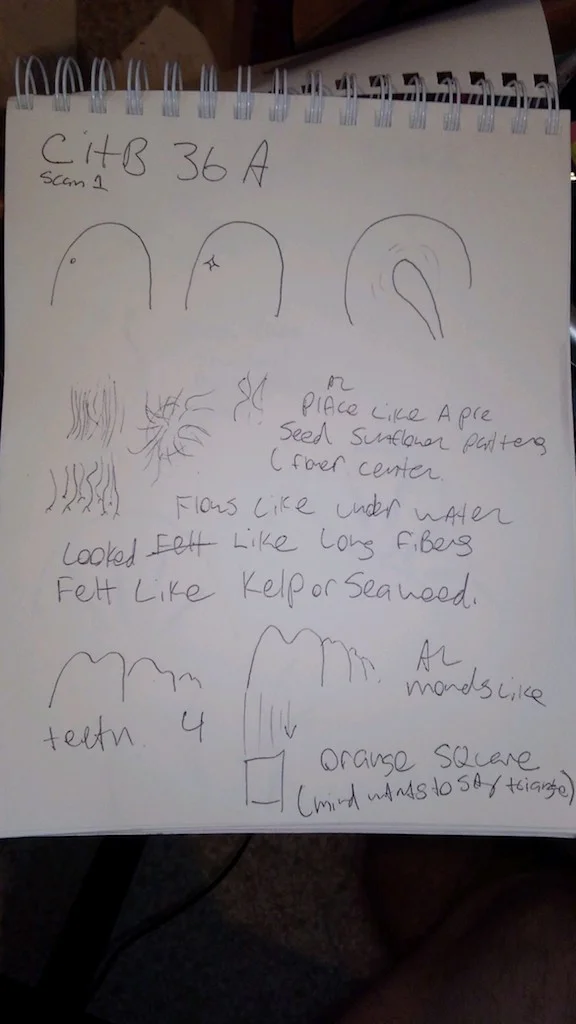 CitB 36 A
Scan 1
AL
Place Like A pre
Seed Sunflower patterns
(flower center.
Flows Like under water
Looked Felt Like Long Fibers
Felt Like Kelp or Seaweed.
AL
teeth. 4
Like
orange Square
(mind wants to SAy triangle)